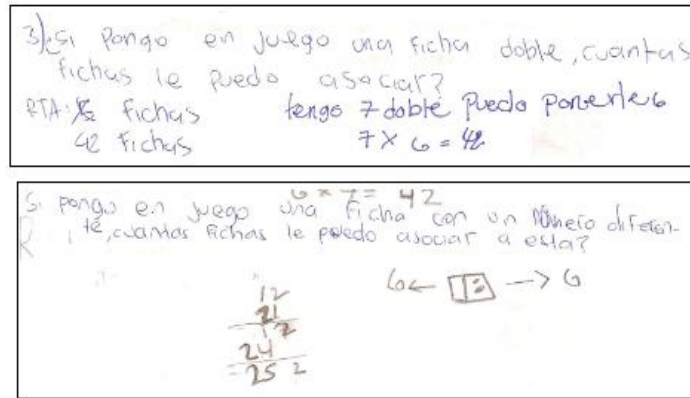 3) ¿Si pongo en juego una ficha doble, cuantas
fichas le puedo asociar?
RTA: fichas tengo 7 doble puedo ponerle 6
42 fichas 7 x 6 = 42
6 x 7 = 42
Si pongo en juego una ficha con un número diferen-
te, cuantas fichas le puedo asociar a esta?
12
6 ← → 6
21
12
24
= 25 2